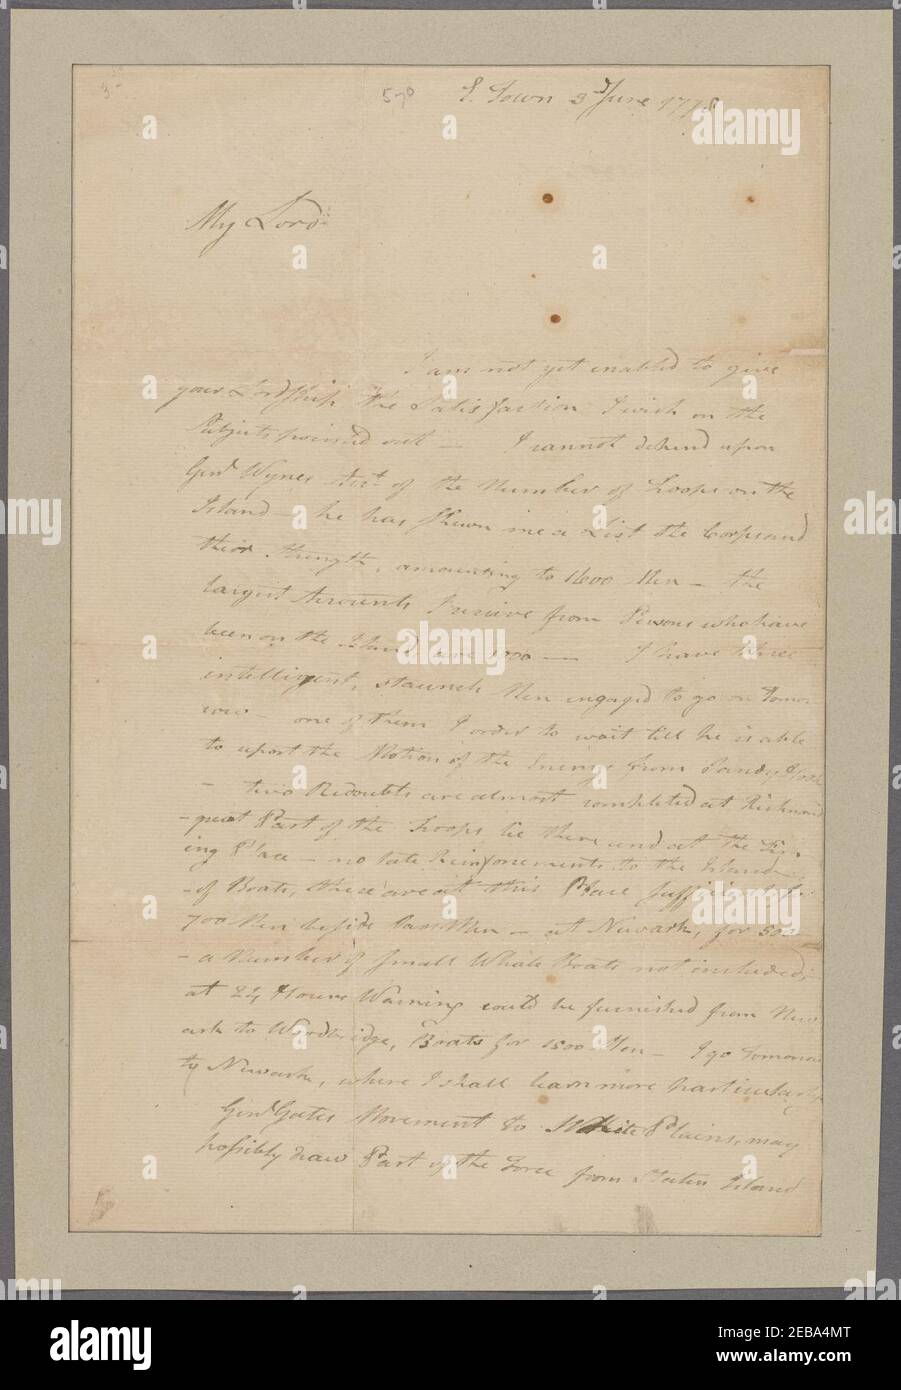 3
570
E. Town 3d June 1778
My Lord
I am not yet enabled to give
your Lordship the Satisfaction I wish on the
Subjects pointed out — I cannot depend upon
Genl Wynes Acct of the Number of Troops on the
Island — he has shewn me a List the Corps and
their strength, amounting to 1600 Men — the
largest Accounts I receive from Persons who have
been on the Island are 1000 — I have three
intelligent, staunch Men engaged to go on Tomor
row — one of them I order to wait till he is able
to report the Motion of the Enemy from Sandy Hook
— two Redoubts are almost completed at Richmond
— great Part of the Troops lie there and at the
ing Place — no late Reinforcements to the Island —
— of Boats, there are at this Place sufficient for
700 Men beside Oarsmen — at Newark, for 500
— a Number of small Whale Boats not included;
at 24 Hours Warning could be furnished from New
ark to Woodbridge, Boats for 1500 Men — I go Tomorrow
to Newark, where I shall learn more particularly
Genl Gates Movement to White Plains, may
possibly draw Part of the Force from Staten Island
alamy
alamy
Image ID: 2EBA4MT
www.alamy.com